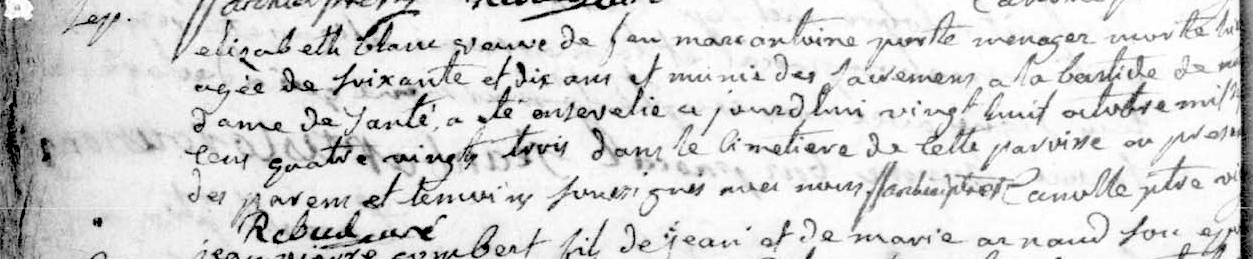 elizabeth blanc veuve de feu marc antoine porte menager morte
agée de soixante et dix ans et munie des sacremens a la bastide de
dame de santé, a été ensevelie a jourdhui vingt huit octobre mil
cens quatre vingts trois dans le cimetiere de cette parroisse en
des parens et temoins soussignes avec nous. canolle ptre
Rebud curé
jean pierre gombert fils de jean et de marie arnaud son